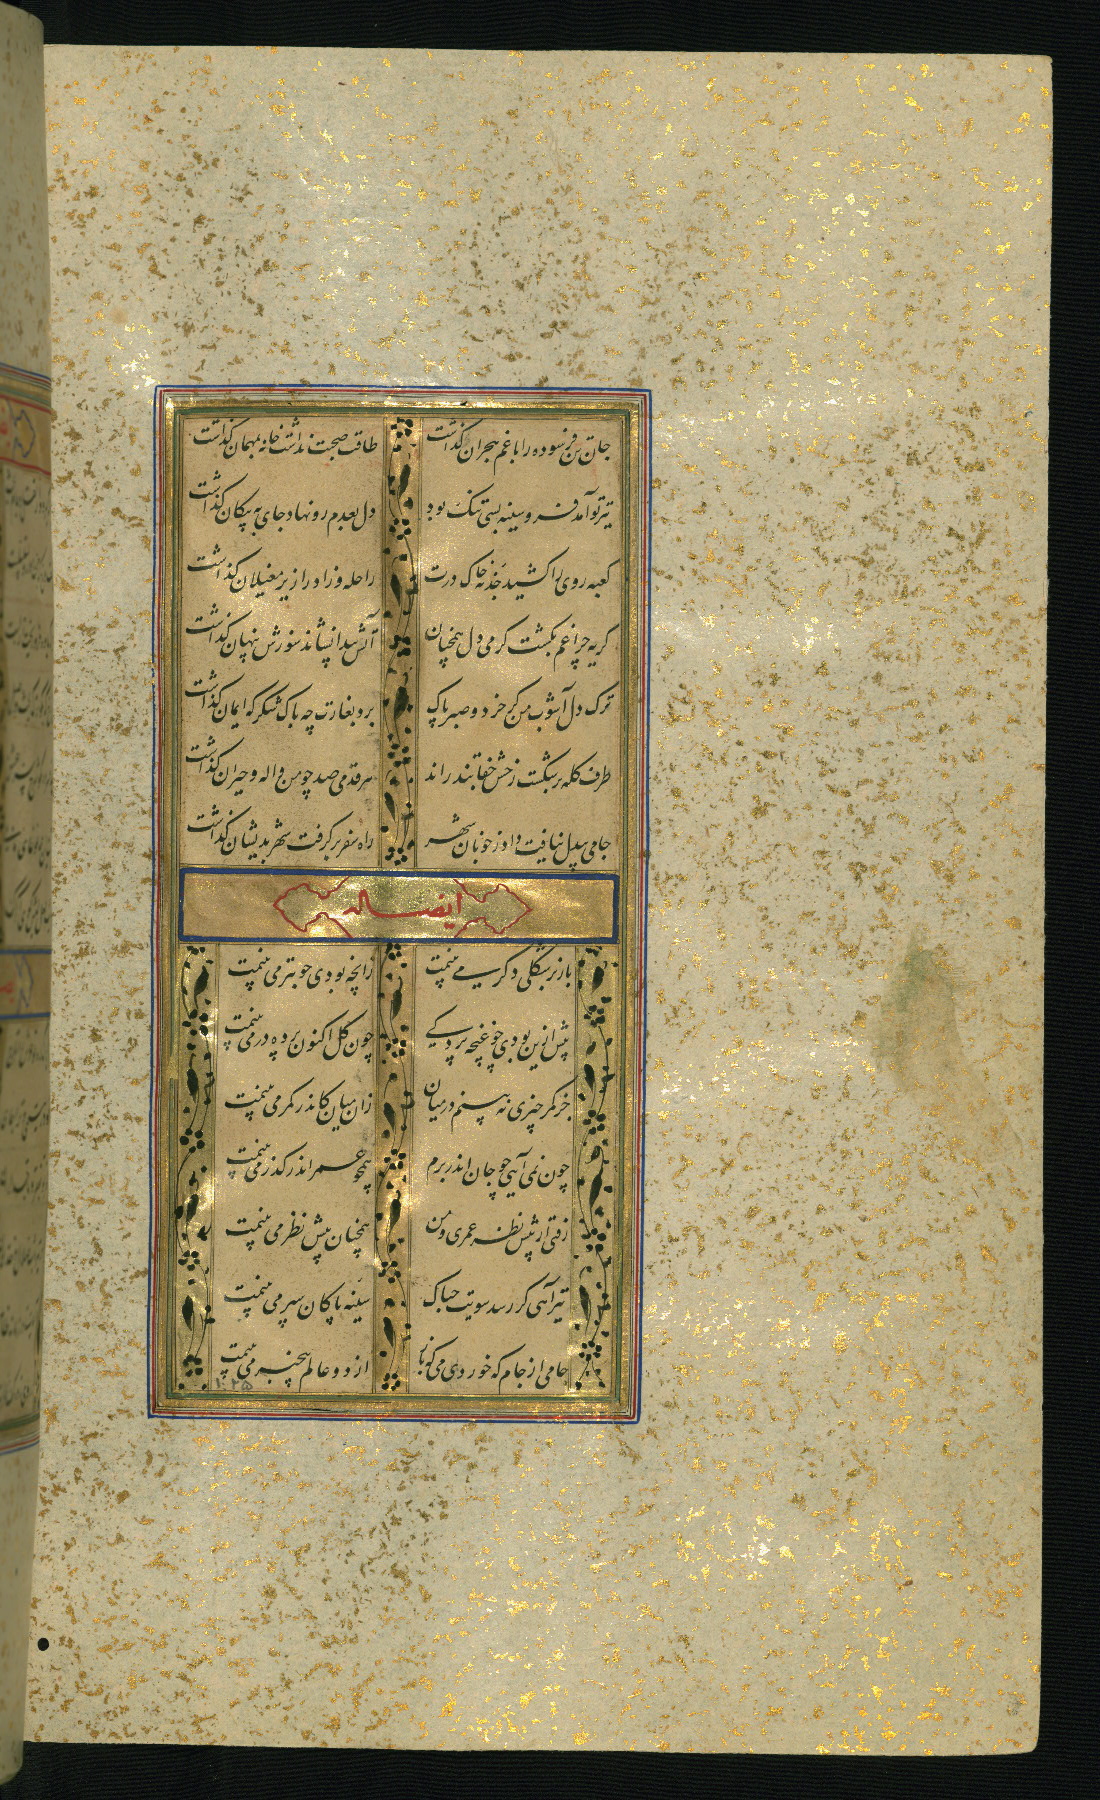 جان تن فرسوده را با غم هجران گذاشت طاقت صحبت نداشت خانه بمهمان گذاشت
تیر تو آمد فرو سینه بسی تنگ بود دل بعدم رو نهاد جای به پیکان گذاشت
کعبه روی را کشید جذبه خاک درت راحله و زاد را زیر مغیلان گذاشت
گریه چراغم بکشت گرمی دل همچنان آتش پیدا نشاند سوزش پنهان گذاشت
ترک دل آشوب من گر خرد و صبر پاک برد بغارت چه باک شکر که ایمان گذاشت
طرف کله بر شکست رخش جفا تند راند هر قدمی صد چو من واله و حیران گذاشت
جامی بیدل نیافت داد ز خوبان شهر راه سفر بر گرفت شهر بدیشان گذاشت
ایضا له
باز بر شکلی دگر می بینمت زانچه بودی خوبتر می بینمت
پیش ازین بودی چو غنچه پردگی چون گل اکنون پرده در می بینمت
جز کمر چیزی نه بینم در میان زان میان کاندر کمر می بینمت
چون نمی آیی چو جان اندر برم همچو عمر اندر گذر می بینمت
رفتی از پیش نظر عمری و من همچنان پیش نظر می بینمت
تیر آهی گر رسد سویت چه باک سینه پاکان سپر می بینمت
جامی از جام که خوردی می که باز از دو عالم بیخبر می بینمت